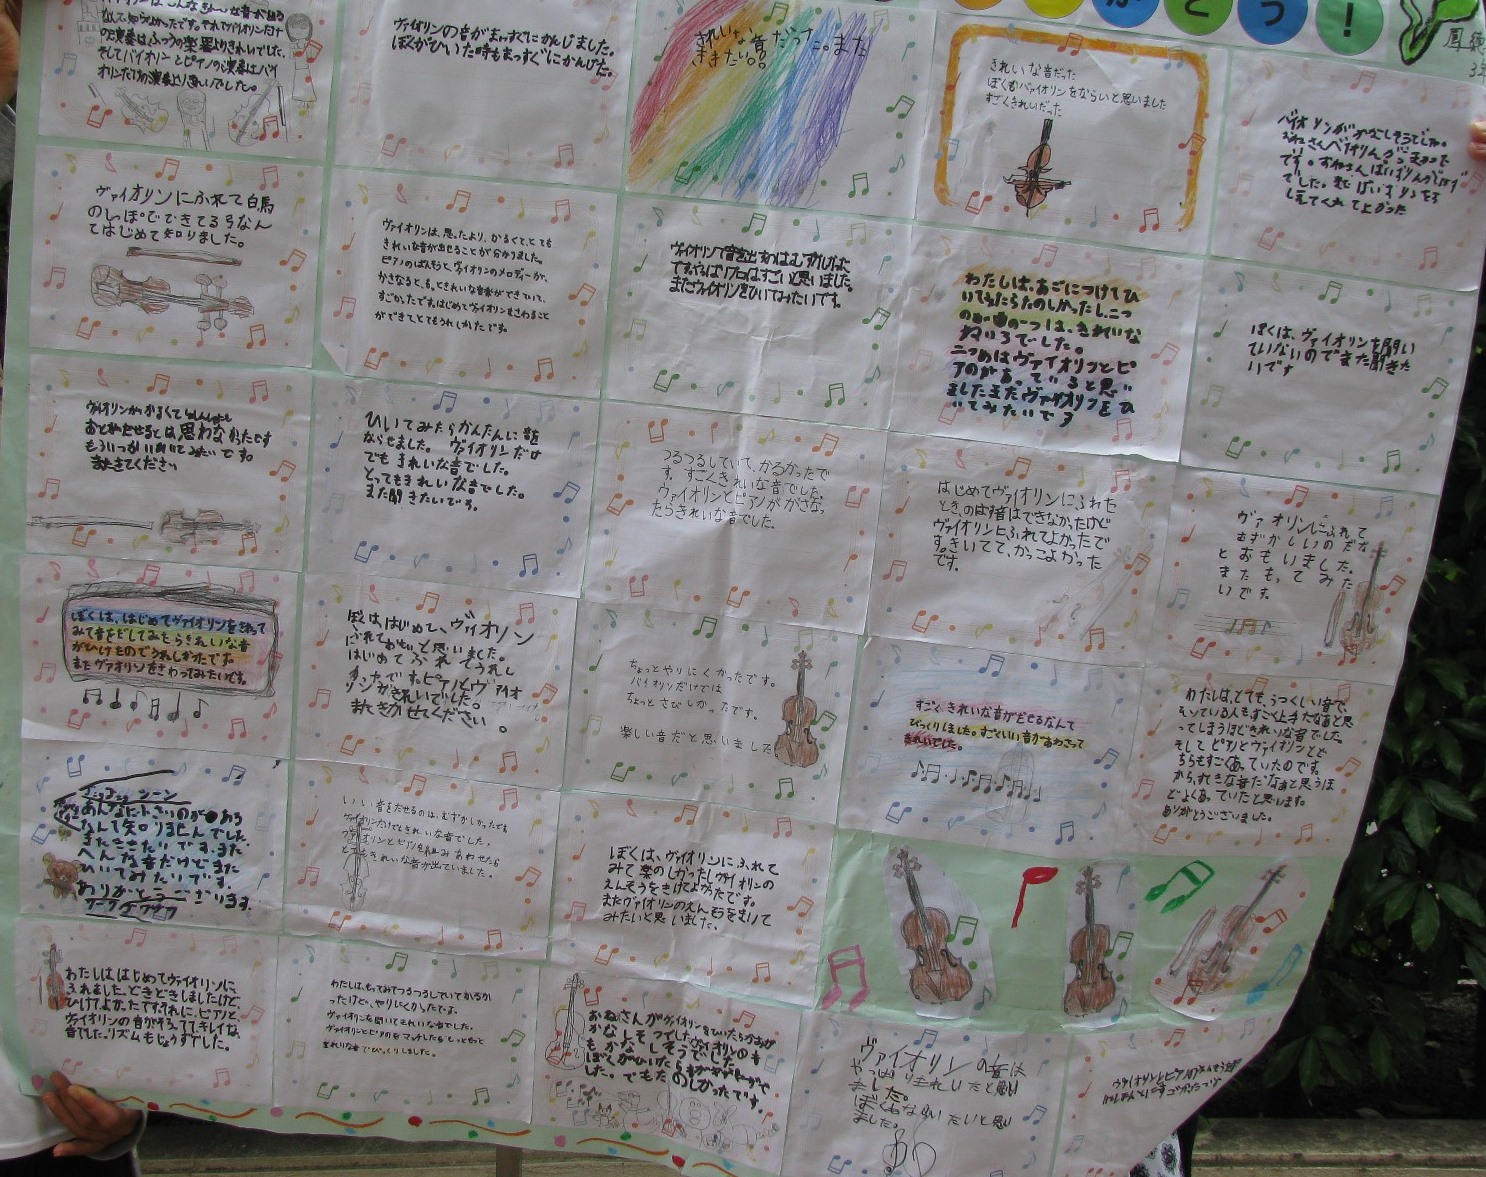 がとう！
なんて知らなかったです。それでヴァイオリンだけ
の演奏は、ふつうの楽器よりきれいでした。
そしてバイオリンとピアノの演奏は、バイ
オリンだけの演奏より
ヴァイオリンの音がまっすぐにかんじました。
ぼくがひいた時もまっすぐにかんじた。
きれいな音だった。また
ききたい。
きれいな音だった
ぼくもバイオリンをならいと思いました
すごくきれいだった
ヴァイオリンにふれて白馬
のしっぽでできてる弓なん
てはじめて知りました。
ヴァイオリンは、思ったより、かるくて、とても
きれいな音が出せることが分かりました。
ピアノのばんそうと、ヴァイオリンのメロディーが、
かさなると、もっときれいな音楽ができていて、
すごかったです。はじめてヴァイオリンをさわること
ができてとてもうれしかったです。
ヴァイオリンで音を出すのはむずかしかった
ですやっぱりプロはすごいと思いました。
またヴァイオリンをひいてみたいです。
わたしは、あごにつけてひ
いてみたらたのしかったし、二つ
きれいな
ねいろでした。
二つめはヴァイオリンとピ
アノがあっていると思い
ましたまたヴァイオリンをひ
いてみたいです
ぼくは、ヴァイオリンを聞い
ていないのでまた聞きた
いです
ヴァイオリンがかるくて
おとがだせるとは思わなかったです
もういっかいひいてみたいです。
またきてください
ひいてみたらかんたんに音を
ならせました。ヴァイオリンだけ
でもきれいな音でした。
とってもきれいな音でした。
また聞きたいです。
つるつるしていて、かるかったで
す。すごくきれいな音でした。
ヴァイオリンとピアノがかさなっ
たらきれいな音でした。
はじめてヴァイオリンにふれた
とき、のは音はできなかったけど
ヴァイオリンにふれてよかったで
す。きいてて、かっこよかった
です。
ヴァイオリンにふれて
むずかしいのだな
とおもいました。
またもってみた
いです。
ぼくは、はじめてヴァイオリンをさわって
みて音をだしてみたらきれいな音
がひけたのでうれしかったです。
またヴァイオリンをさわってみたいです。
ぼくは、はじめて、ヴァイオリン
はじめてふれてうれし
かったです。ピアノとヴァイオ
リンがきれいでした。
またきかせてください。
ちょっとやりにくかったです。
バイオリンだけでは
ちょっとさびしかったです。
楽しい音だと思いました
すごくきれいな音がだせるなんて
びっくりしました。すごくいい音があわさって
きれいでした。
わたしは、とても、うつくしい音で、
そして、ピアノとヴァイオリンとど
ちらもすごくあっていたのです。
から、すてきな音だなぁと思うほ
どよくあっていたと思います。
ありがとうございました。
あんなに小さいのが
なんて知りませんでした。
またききたいです。また
へんな音だけどまた
ひいてみたいです。
ありがとうーございます。
いい音をだせるのは、むずかしかったです
ヴァイオリンだけでときれいな音でした。
ヴァイオリンとピアノを組みあわせたら
とてもきれいな音が出ていました。
ぼくは、ヴァイオリンにふれて
みて楽のしかったしヴァイオリンの
えんそうをきけてよかったです。
またヴァイオリンのえんそうをきいて
みたいと思いました。
わたしははじめてヴァイオリンに
ふれました。どきどきしましたけど
ひけてよかったです。それに、ピアノと
ヴァイオリンの音がそろってて、キレイな
音でした。リズムもじょうずでした。
わたしは、もってみてつるつるしていてかるか
ったけど、やりにくかったです。
ヴァイオリンを聞いてきれいな音でした。
きれいな音でびっくりしました。
おねさんがヴァイオリンをひいたらおとが
かなしそうでしたヴァイオリンの音
もかなしそうでした
した。でもたのしかったです。
ヴァイオリンの音は
やっぱりきれいだと思い
ました。
ぼくもならいたいと思い
ました。